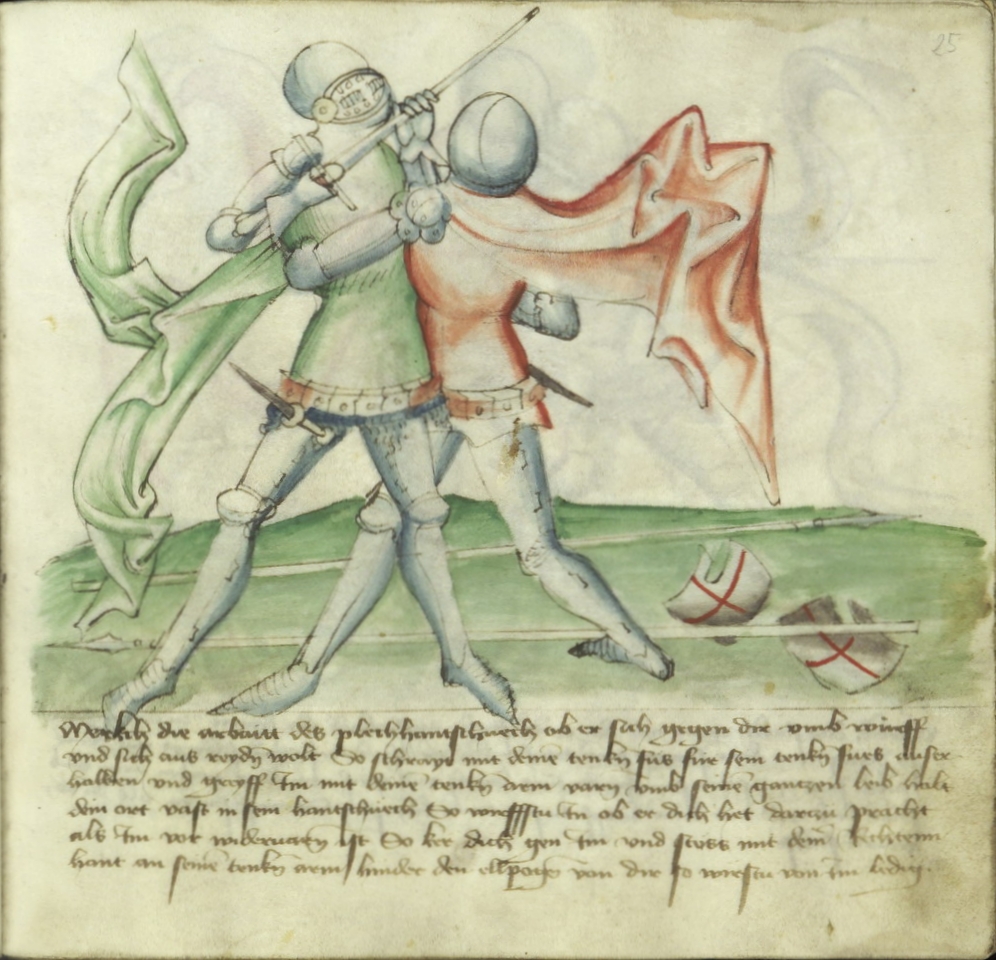 25
Merkch die arbaitt des plechhantschuech ob er sich gegen dir umb wurff
und sich aus reydn wolt So schreyt mit deine tenkn fus für sein tenkn fues auser
halben und greyff Im mit deine tenkn arm varn umb seine gantzen leib halt
dein ort vast in sein hantschuech So wirffstu In ob er dich het darzu pracht
als Im vor wideruaren ist So ker dich gen Im und stoss mit dem Rechtenn
hant an seine tenkn arm hinder den ellpogen von dir so wirstu von Im ledig.